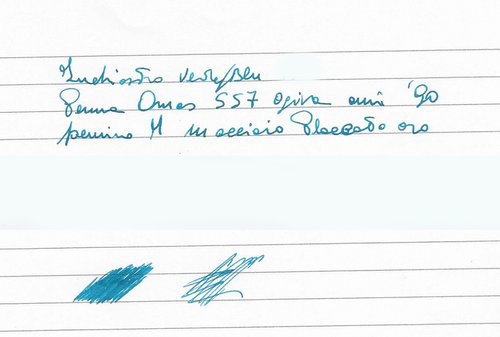 Inchiostro verde/blu
Penna Omas 557 ogiva anni '90
pennino M in acciaio placcato oro